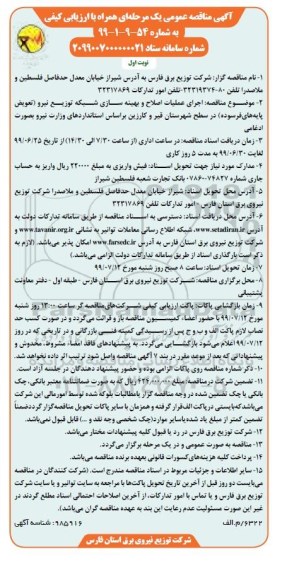 آگهی مناقصه عمومی یک مرحله‌ای همراه با ارزیابی کیفی
به شماره ۵۲-۹-۱-۹۹
شماره سامانه ستاد ۲۰۹۹۰۰۷۰۰۰۰۰۰۰۲۱
نوبت اول
۱- نام مناقصه گزار: شرکت توزیع برق فارس به آدرس شیراز خیابان معدل حدفاصل فلسطین و
ملاصدرا تلفن ۸۰-۳۲۳۱۹۳۷۴ تلفن امور تدارکات ۳۲۳۱۷۸۶۹
۲- موضوع مناقصه: اجرای عملیات اصلاح و بهینه سازی شبکه توزیع نیرو (تعویض
پایه‌های فرسوده) در سطح شهرستان قیر و کارزین براساس استانداردهای وزارت نیرو بصورت
ادغامی
۳- زمان دریافت اسناد مناقصه: در ساعت اداری (از ساعت ۷/۳۰ الی ۱۴/۳۰) از تاریخ ۹۹/۰۶/۲۵
لغایت ۹۹/۰۶/۳۰ به مدت ۵ روز کاری
۴- مدارک مورد نیاز جهت تحویل اسناد: فیش واریزی به مبلغ ۲۲۰۰۰۰ ریال واریز به حساب
جاری شماره ۷۸۶۰۰۰۷۴۸۲۷ بانک تجارت شعبه فلسطین شیراز
۵- آدرس محل تحویل اسناد: شیراز خیابان معدل حدفاصل فلسطین و ملاصدرا شرکت توزیع
نیروی برق استان فارس - امور تدارکات تلفن ۳۲۳۱۷۸۶۹
۶- آدرس محل دریافت اسناد: دسترسی به اسناد مناقصه از طریق سامانه تدارکات دولت به
آدرس www.setadiran.ir، شبکه اطلاع رسانی معاملات توانیر به نشانی www.tavanir.org.ir و
شرکت توزیع نیروی برق استان فارس به آدرس www.farsedc.ir امکان پذیر می‌باشد. (لازم به
ذکر است بارگذاری اسناد از طریق سامانه تدارکات دولت الزامی می‌باشد)
۷- زمان تحویل اسناد: ساعت ۸ صبح روز شنبه مورخ ۹۹/۰۷/۱۲
۸- محل برگزاری مناقصه: شرکت توزیع نیروی برق استان فارس - طبقه اول - دفتر معاونت
پشتیبانی
۹- زمان بازگشایی پاکات: پاکت ارزیابی کیفی شرکت‌های مناقصه گر ساعت ۱۳:۰۰ روز شنبه
مورخ ۹۹/۰۷/۱۲ با حضور اعضاء کمیسیون مناقصه باز و قرائت می‌گردد و در صورت کسب حد
نصاب لازم پاکت الف و ب و ج پس از رسیدگی کمیته فنی بازرگانی و در تاریخی که در روز
۹۹/۰۷/۱۲ اعلام می‌شود بازگشایی می‌گردد. به پیشنهادهای فاقد امضا، مشروط، مخدوش و
پیشنهاداتی که بعد از موعد مقرر در بند ۷ آگهی مناقصه واصل شود ترتیب اثر داده نخواهد شد.
۱۰- ذکر شماره مناقصه روی پاکات الزامی بوده و حضور پیشنهاد دهندگان در جلسه آزاد است.
بانکی یا چک تضمین شده در وجه مناقصه گزار یا مطالبات بلوکه شده توسط امور مالی این شرکت
تضمین کمتر از مبلغ یاد شده یا سایر موارد (چک شخصی وجه نقد و ...) قابل قبول نمی‌باشد.
۱۲- شرکت توزیع برق فارس در رد یا قبول کلیه پیشنهادات مختار می‌باشد.
۱۳- مناقصه به صورت عمومی و در یک مرحله برگزار می‌گردد.
۱۴- پرداخت کلیه هزینه‌های کسورات قانونی بعهده برنده مناقصه می‌باشد.
۱۵- سایر اطلاعات و جزئیات مربوط در اسناد مناقصه مندرج است. (شرکت کنندگان در مناقصه
می‌بایست دو روز قبل از آخرین تاریخ تحویل پاکت‌ها با مراجعه به سایت توانیر و یا سایت شرکت
توزیع برق فارس و یا تماس با امور تدارکات، از آخرین اصلاحات احتمالی اسناد مطلع گردند در
غیر این صورت مسئولیت عدم رعایت این بند به عهده مناقصه گران می‌باشد).
۶۳۲۲/م.الف شناسه آگهی: ۹۸۵۹۱۶
شرکت توزیع نیروی برق استان فارس